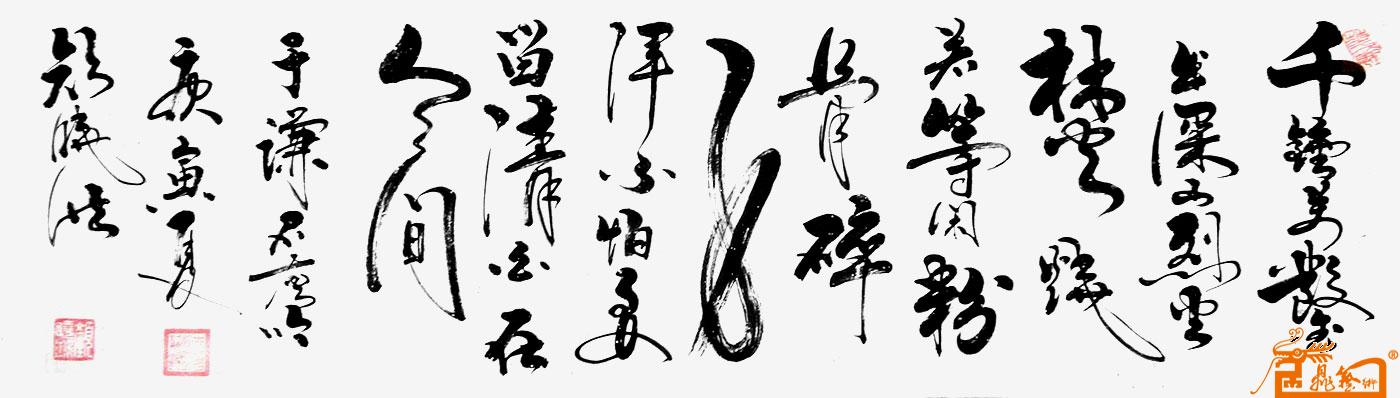 千錘萬鑿
出深山烈火
焚燒
若等閑粉
骨碎
身
渾不怕要
留清白在
人间
于謙石灰吟
庚寅夏